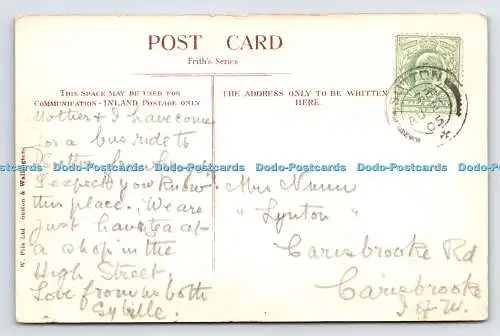 POST CARD
Frith's Series
THIS SPACE MAY BE USED FOR
COMMUNICATION - INLAND POSTAGE ONLY
THE ADDRESS ONLY TO BE WRITTEN
HERE.
Mother & I have come
for a bus ride to
I expect you know
this place. We are
just having tea at
a shop in the
High Street.
Love from us both
Sybille.
Mrs Nunn
"Lynton"
Carisbrooke Rd
Carisbrooke
I of W.
SUTTON
05
W. Pile Ltd. Sutton & Wallington.
Dodo-Postcards Dodo-Postcards Dodo-Postcards Dodo-Postcards Dodo-Postcards Dodo-Postcards